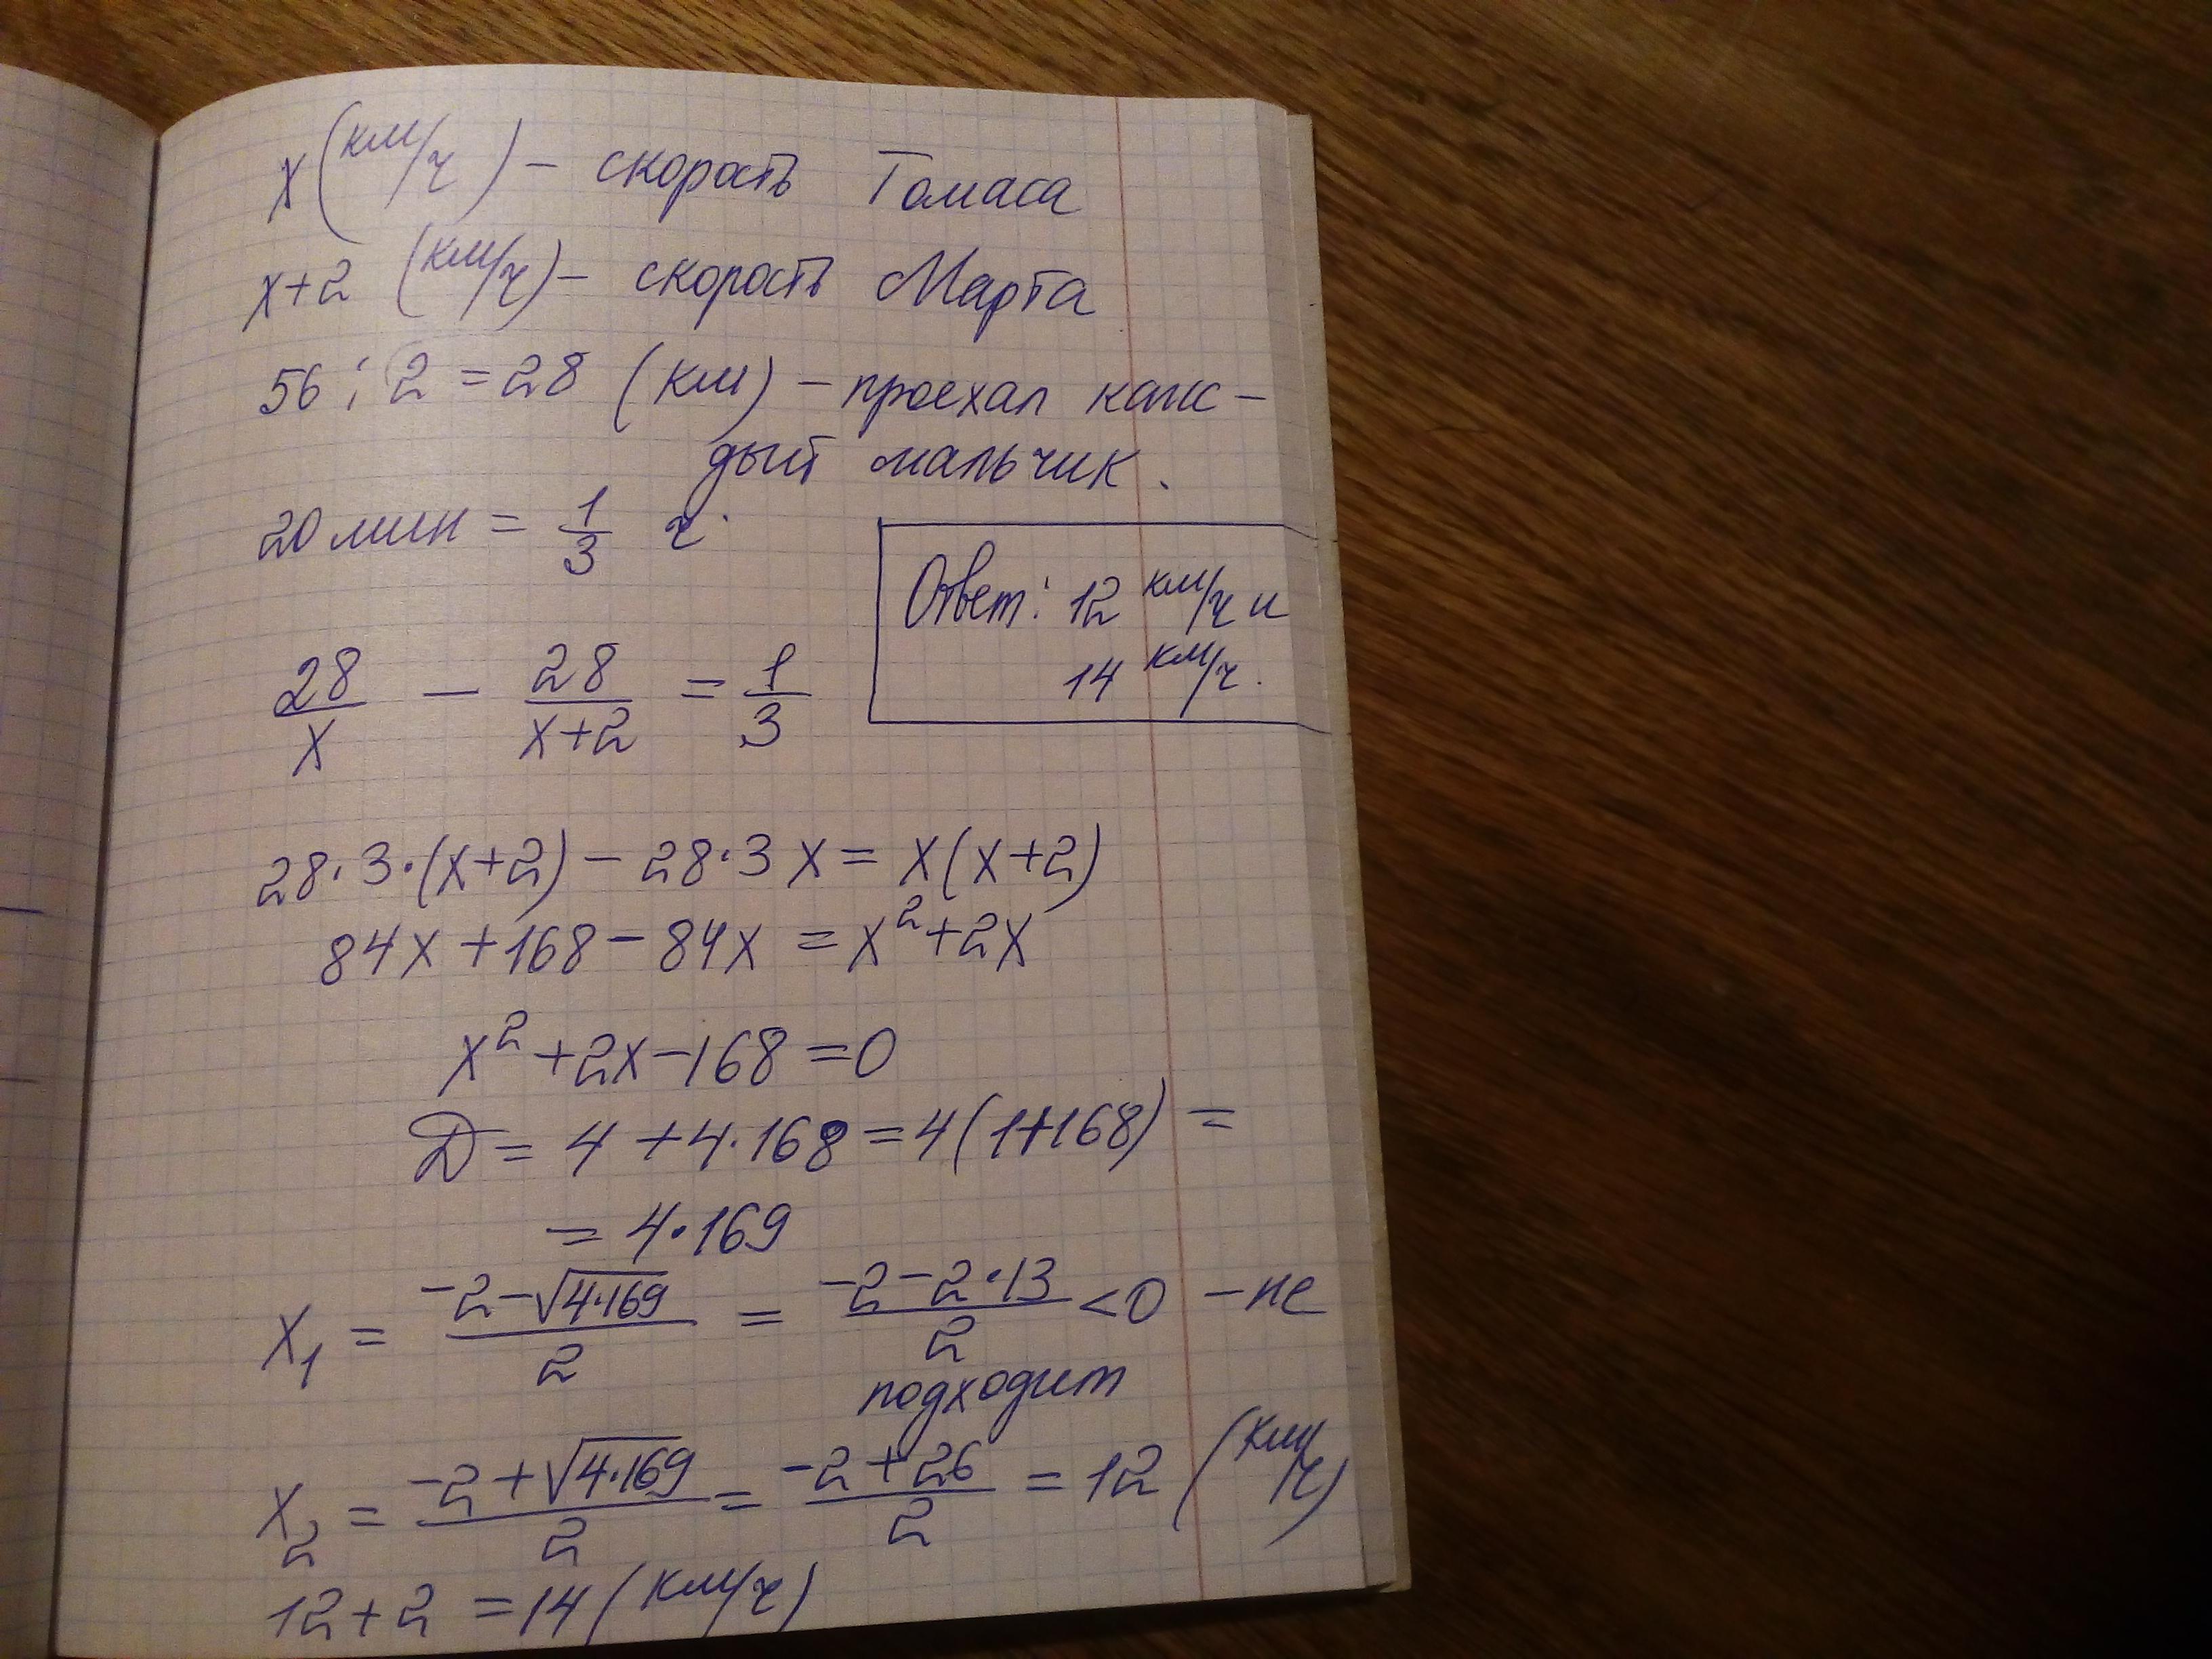 x (км/ч) – скорость Томаса
x+2 (км/ч) – скорость Марта
56 : 2 = 28 (км) – проехал каж-
дый мальчик.
20 мин = 1/3 ч.
28/x – 28/(x+2) = 1/3
Ответ: 12 км/ч и
14 км/ч.
28·3·(x+2) – 28·3x = x(x+2)
84x + 168 – 84x = x² + 2x
x² + 2x – 168 = 0
D = 4 + 4·168 = 4(1+168) =
= 4·169
x₁ = (–2–√(4·169))/2 = (–2–2·13)/2 < 0 – не
подходит
x₂ = (–2+√(4·169))/2 = (–2+26)/2 = 12 (км/ч)
12+2 = 14 (км/ч)